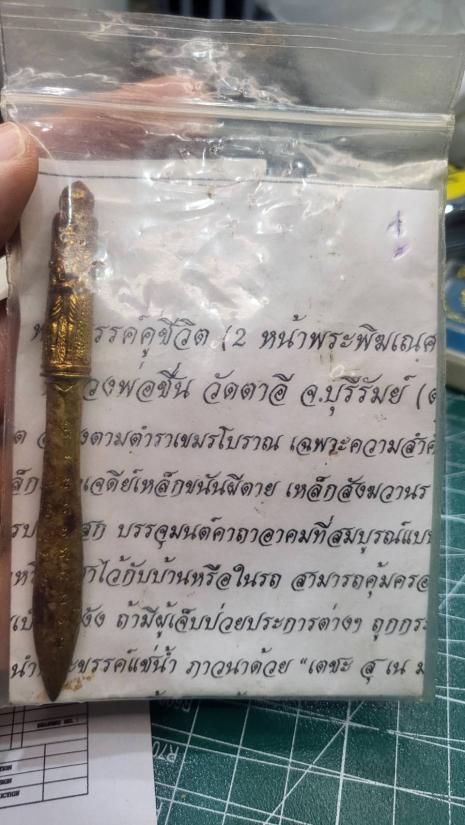 รรค์คู่ชีวิต (2 หน้าพระพิฆเณศ
วงพ่อชื่น วัดตาอี จ.บุรีรัมย์ (
งตามตำราเขมรโบราณ เฉพาะความสำคั
ล็ก เจดีย์เหล็กขนันผีตาย เหล็กสังฆวานร
รบ ก บรรจุมนต์คาถาอาคมที่สมบูรณ์แบบ
หรื าไว้กับบ้านหรือในรถ สามารถคุ้มครอ
ถ้ามีผู้เจ็บป่วยประการต่างๆ ถูกกระ
นำ ะขรรค์แช่น้ำ ภาวนาด้วย "เตชะ สุ เน ม
R70